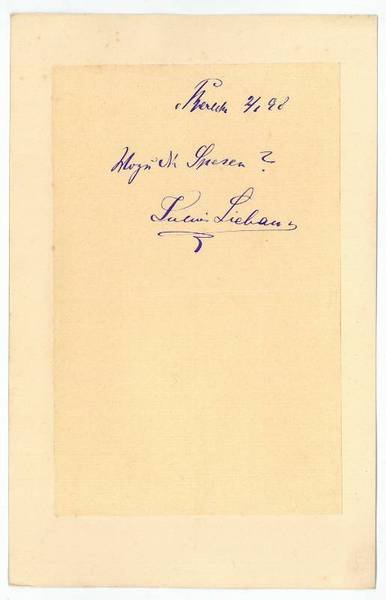 Berlin 2/1 98
Wozu die Spesen?
Julius Lieban